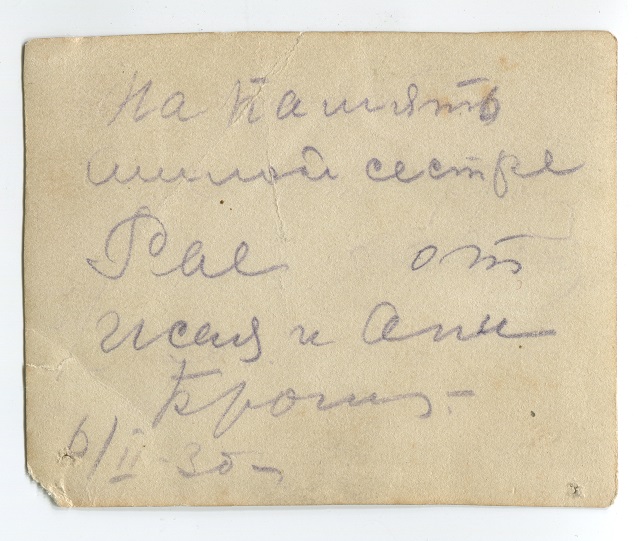 На память
милой сестре
Рае от
Исая и Ани
6/II-35